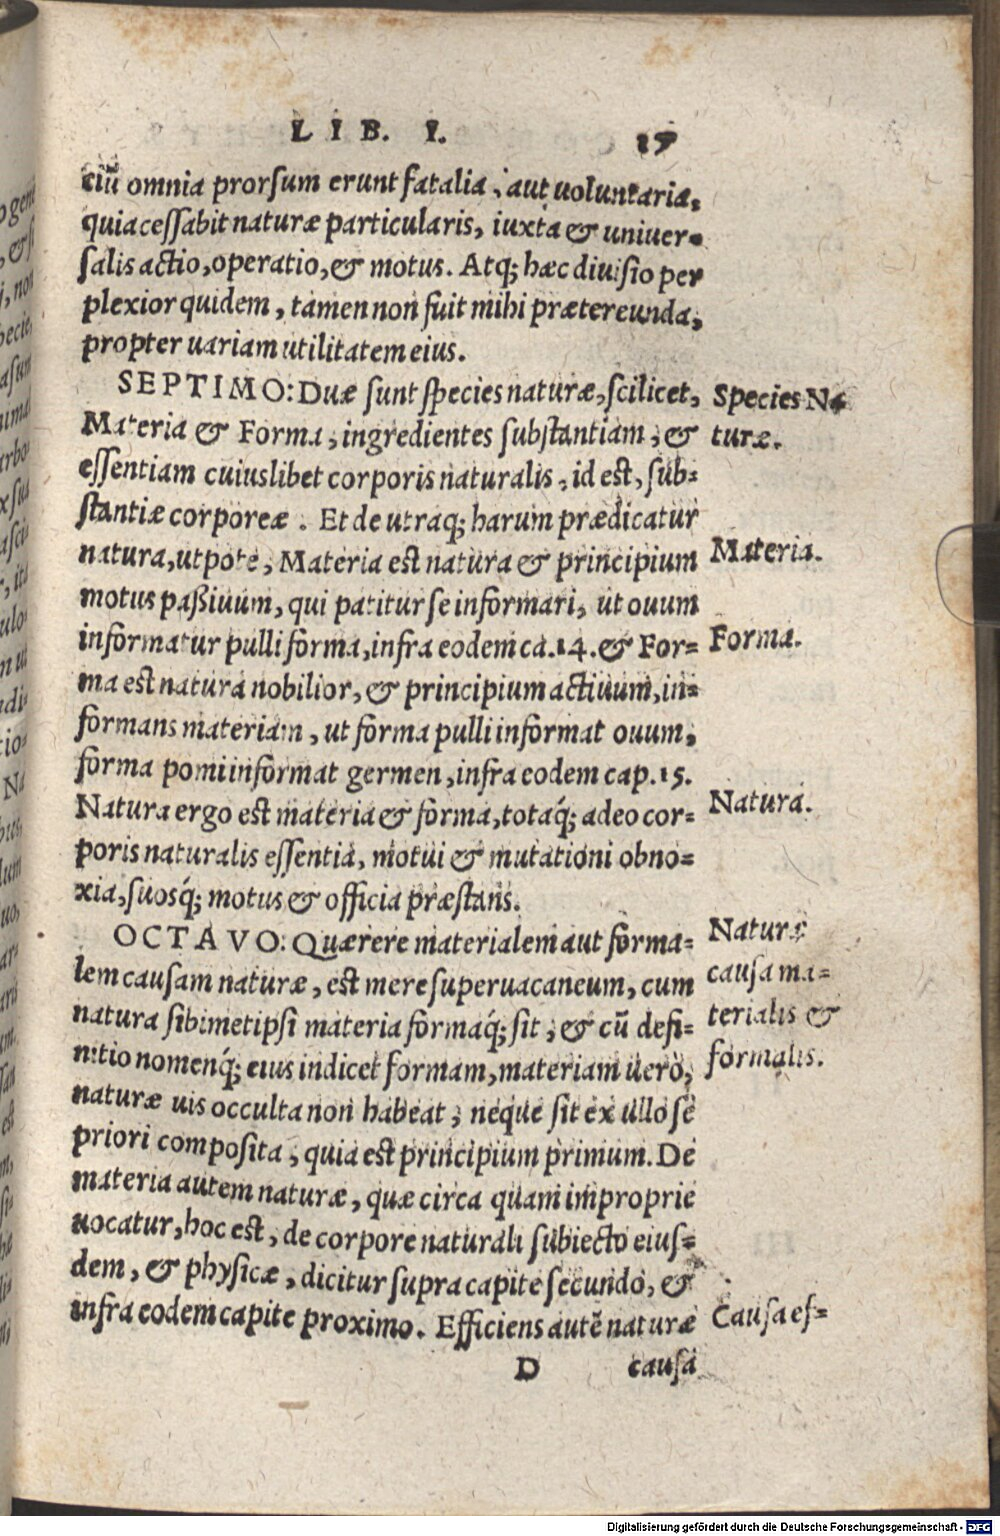 LIB. I. 17
ciũ omnia prorsum erunt fatalia, aut uoluntaria,
quia cessabit naturæ particularis, iuxta & uniuer-
salis actio, operatio, & motus. Atq; hæc diuisio per
plexior quidem, tamen non fuit mihi prætereunda,
propter uariam utilitatem eius.
SEPTIMO: Duæ sunt species naturæ, scilicet,
Species Na
Materia & Forma, ingredientes substantiam, &
turæ.
essentiam cuiuslibet corporis naturalis, id est, sub-
stantiæ corporeæ. Et de utraq; harum prædicatur
natura, utpote, Materia est natura & principium
Materia.
motus paßiuum, qui patitur se informari, ut ouum
informatur pulli forma, infra eodem ca. 14. & For-
Forma.
ma est natura nobilior, & principium actiuum, in-
formans materiam, ut forma pulli informat ouum,
forma pomi informat germen, infra eodem cap. 15.
Natura ergo est materia & forma, totaq́; adeo cor-
Natura.
poris naturalis essentia, motui & mutationi obno-
xia, suosq́; motus & officia præstans.
OCTAVO: Quærere materialem aut forma-
Naturæ
lem causam naturæ, est mere superuacaneum, cum
causa ma-
natura sibimetipsi materia formaq́; sit, & cũ defi-
terialis &
nitio nomenq́; eius indicet formam, materiam uero,
formalis.
naturæ uis occulta non habeat, neque sit ex ullo se
priori composita, quia est principium primum. De
materia autem naturæ, quæ circa quam improprie
uocatur, hoc est, de corpore naturali subiecto eius-
dem, & physicæ, dicitur supra capite secundo, &
infra eodem capite proximo. Efficiens autẽ naturæ
Causa ef-
D causa
Digitalisierung gefördert durch die Deutsche Forschungsgemeinschaft - DFG